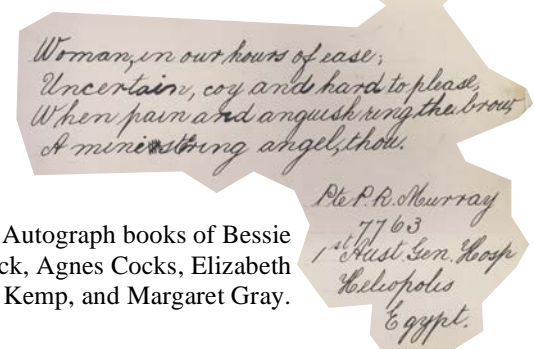 Woman, in our hours of ease;
Uncertain, coy and hard to please,
When pain and anguish ring the brow,
A ministring angel, thou.
Pte P. R. Murray
7763
1st Aust. Gen. Hosp
Heliopolis
Egypt.
Autograph books of Bessie
ck, Agnes Cocks, Elizabeth
Kemp, and Margaret Gray.